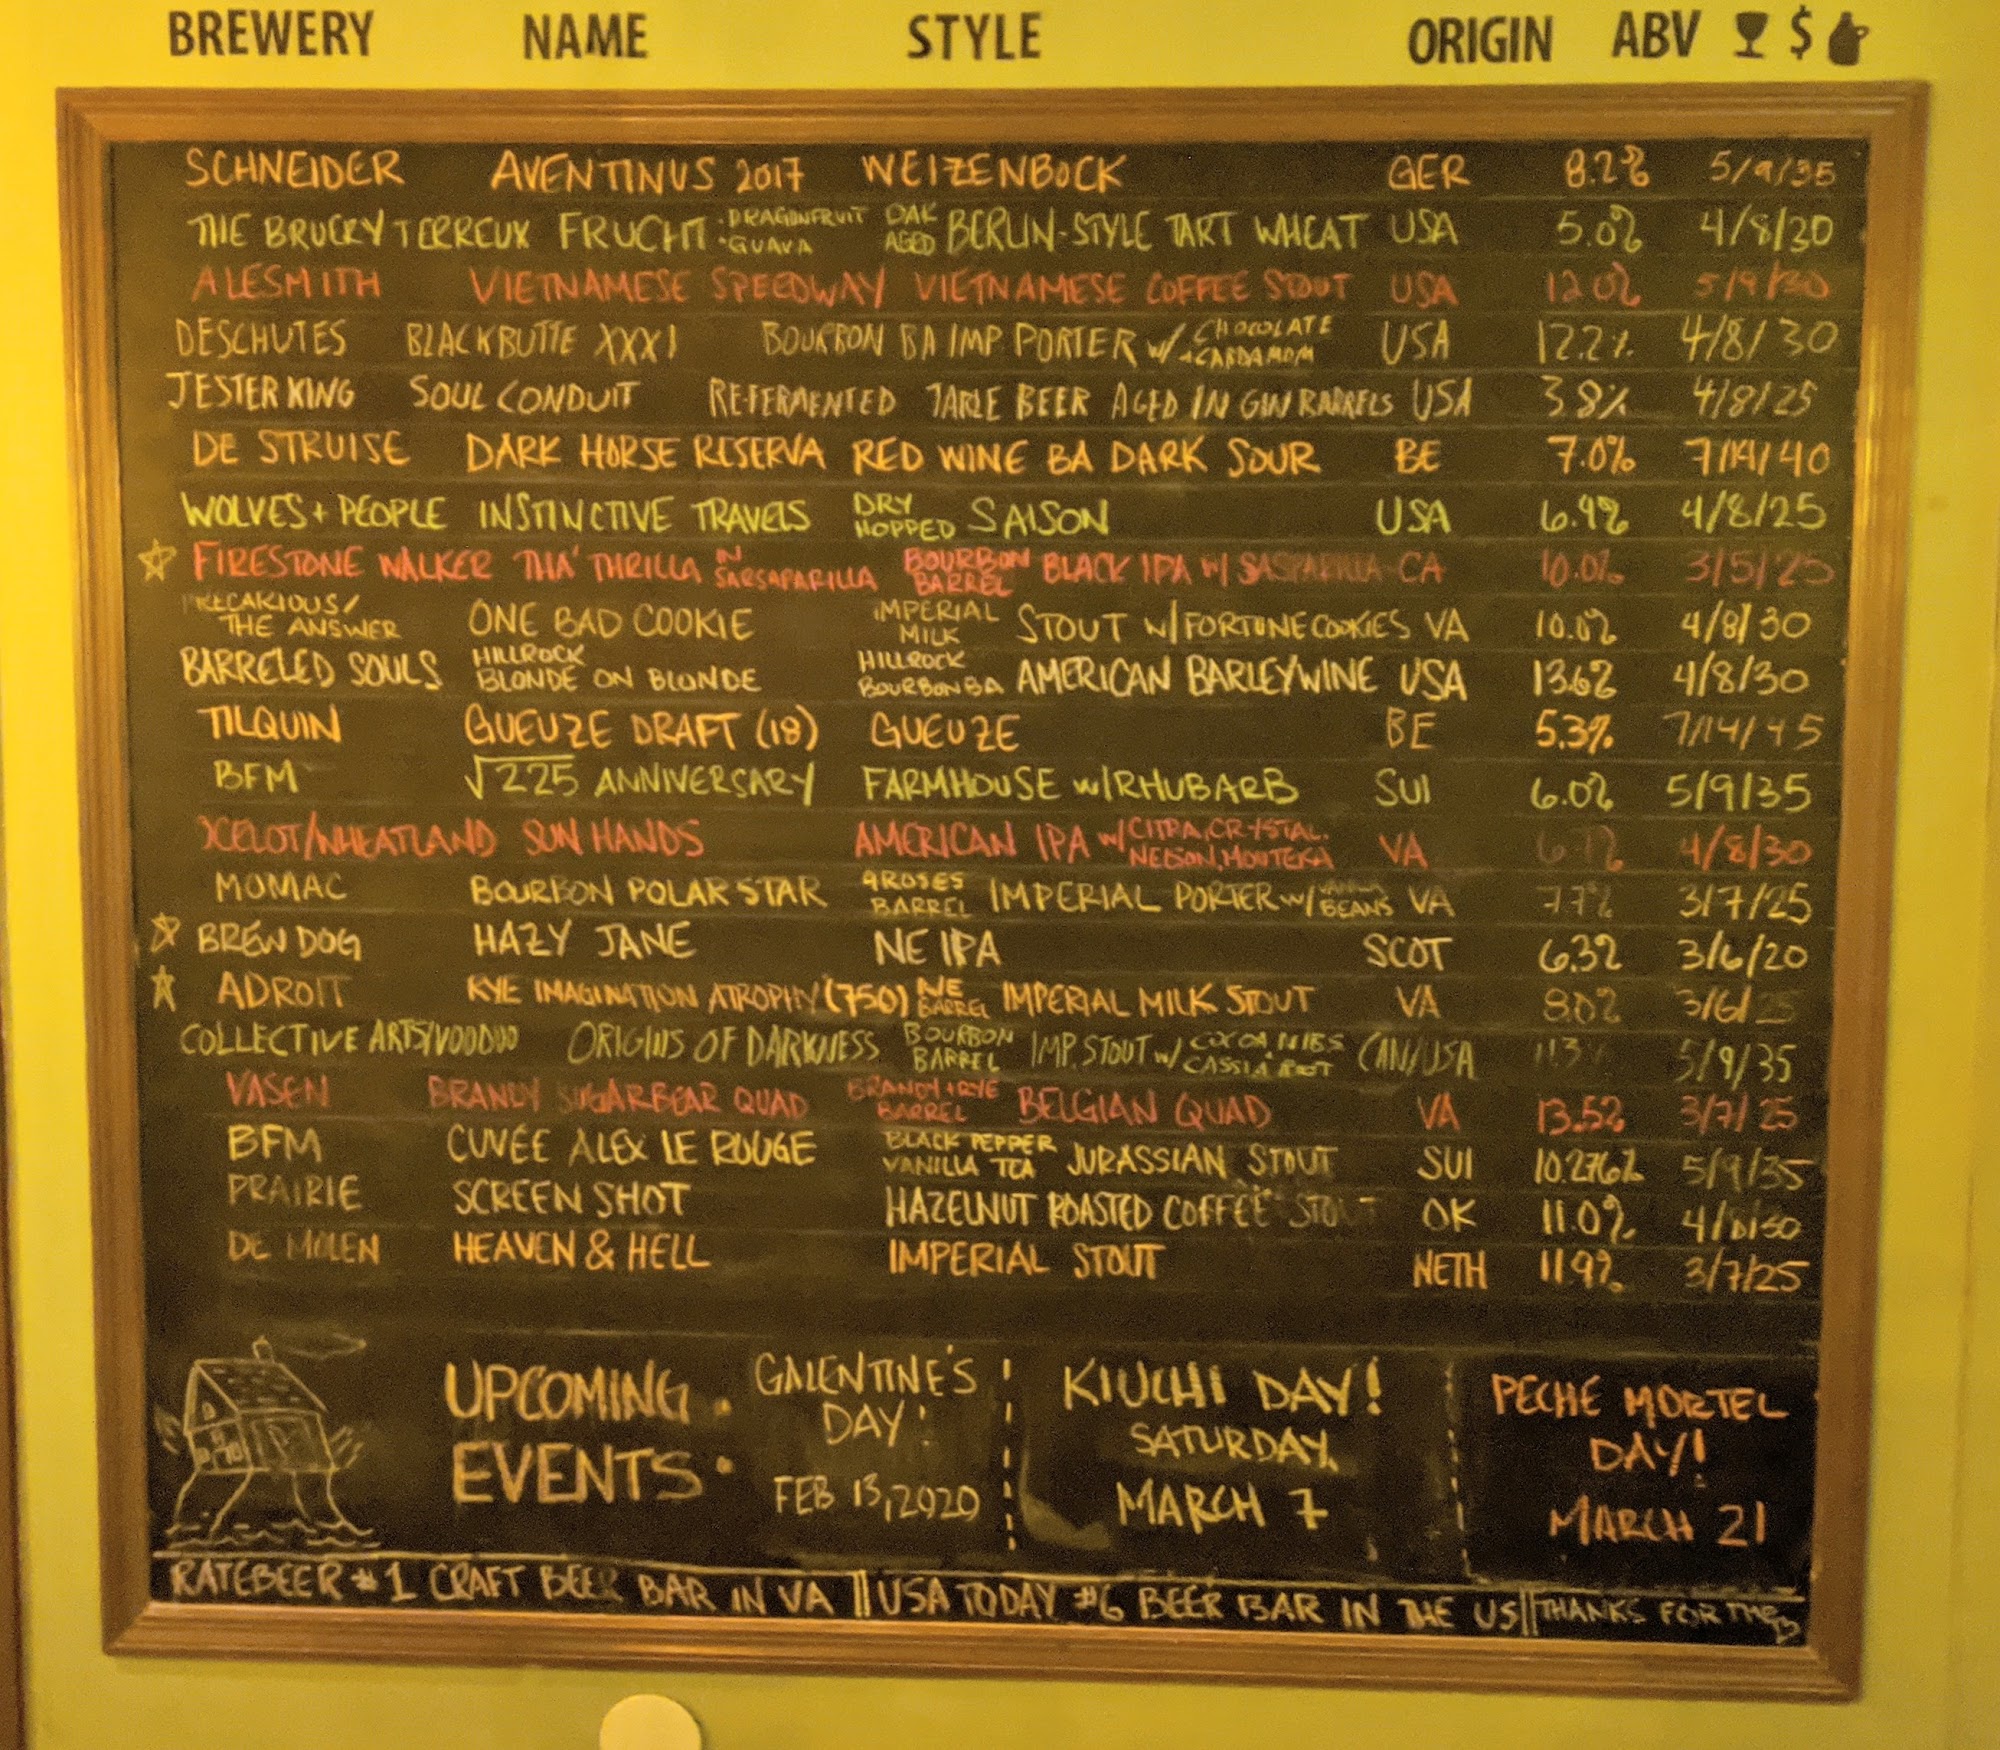 BREWERY NAME STYLE ORIGIN ABV $
SCHNEIDER AVENTINUS 2017 WEIZENBOCK GER 8.2% 5/9/35
THE BRUERY TERREUX FRUCHT: DRAGONFRUIT GUAVA OAK AGED BERLIN-STYLE TART WHEAT USA 5.0% 4/8/30
ALESMITH VIETNAMESE SPEEDWAY VIETNAMESE COFFEE STOUT USA 12.0% 5/9/30
DESCHUTES BLACK BUTTE XXXI BOURBON BA IMP. PORTER W/ CHOCOLATE + CARDAMOM USA 12.2% 4/8/30
JESTER KING SOUL CONDUIT RE-FERMENTED TABLE BEER AGED IN GIN BARRELS USA 3.8% 4/8/25
DE STRUISE DARK HORSE RESERVA RED WINE BA DARK SOUR BE 7.0% 7/14/40
WOLVES + PEOPLE INSTINCTIVE TRAVELS DRY HOPPED SAISON USA 6.9% 4/8/25
FIRESTONE WALKER THA' THRILLA IN SARSAPARILLA BOURBON BARREL BLACK IPA W/ SASPARILLA CA 10.0% 3/5/25
PRECARIOUS/ THE ANSWER ONE BAD COOKIE IMPERIAL MILK STOUT W/ FORTUNE COOKIES VA 10.0% 4/8/30
BARRELED SOULS HILLROCK BLONDE ON BLONDE HILLROCK BOURBON BA AMERICAN BARLEYWINE USA 13.6% 4/8/30
TILQUIN GUEUZE DRAFT (18) GUEUZE BE 5.3% 7/14/45
BFM √225 ANNIVERSARY FARMHOUSE W/RHUBARB SUI 6.0% 5/9/35
OCELOT/WHEATLAND SUN HANDS AMERICAN IPA W/ CITRA, CRYSTAL, NELSON, MOUTEKA VA 4/8/30
MOMAC BOURBON POLAR STAR 4 ROSES BARREL IMPERIAL PORTER W/ VANILLA BEANS VA 7.7% 3/7/25
BREW DOG HAZY JANE NE IPA SCOT 6.3% 3/6/20
ADROIT RYE IMAGINATION ATROPHY (750) RYE BARREL IMPERIAL MILK STOUT VA 8.0% 3/6/25
COLLECTIVE ARTS/VOODOO ORIGINS OF DARKNESS BOURBON BARREL IMP. STOUT W/ COCOA NIBS CASSIA CAN/USA 5/9/35
VASEN BRANDY SUGARBEAR QUAD BRANDY + RYE BARREL BELGIAN QUAD VA 13.5% 3/7/25
BFM CUVÉE ALEX LE ROUGE BLACK PEPPER VANILLA TEA JURASSIAN STOUT SUI 10.276% 5/9/35
PRAIRIE SCREEN SHOT HAZELNUT ROASTED COFFEE STOUT OK 11.0% 4/8/30
DE MOLEN HEAVEN & HELL IMPERIAL STOUT NETH 11.9% 3/7/25
UPCOMING EVENTS:
GALENTINE'S DAY!
FEB 13, 2020
KIUCHI DAY!
SATURDAY,
MARCH 7
PECHE MORTEL
DAY!
MARCH 21
RATEBEER #1 CRAFT BEER BAR IN VA || USA TODAY #6 BEER BAR IN THE US || THANKS FOR THE